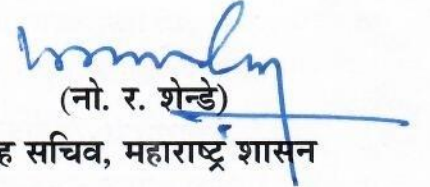 (नो. र. शेन्डे)
ह सचिव, महाराष्ट्र शासन